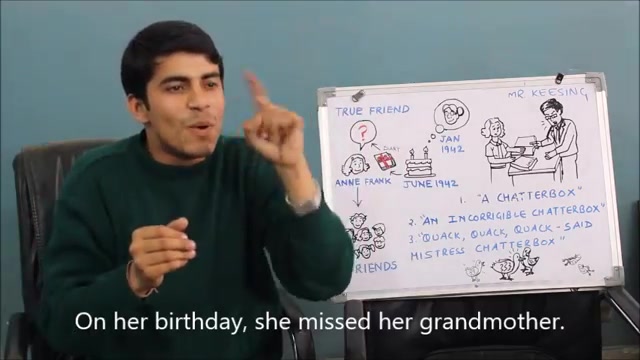 TRUE FRIEND
MR. KEESING
?
DIARY
JAN
1942
ANNE FRANK
JUNE 1942
1. "A CHATTERBOX"
2. "AN INCORRIGIBLE CHATTERBOX"
3. "QUACK, QUACK, QUACK - SAID
MISTRESS CHATTERBOX"
FRIENDS
On her birthday, she missed her grandmother.